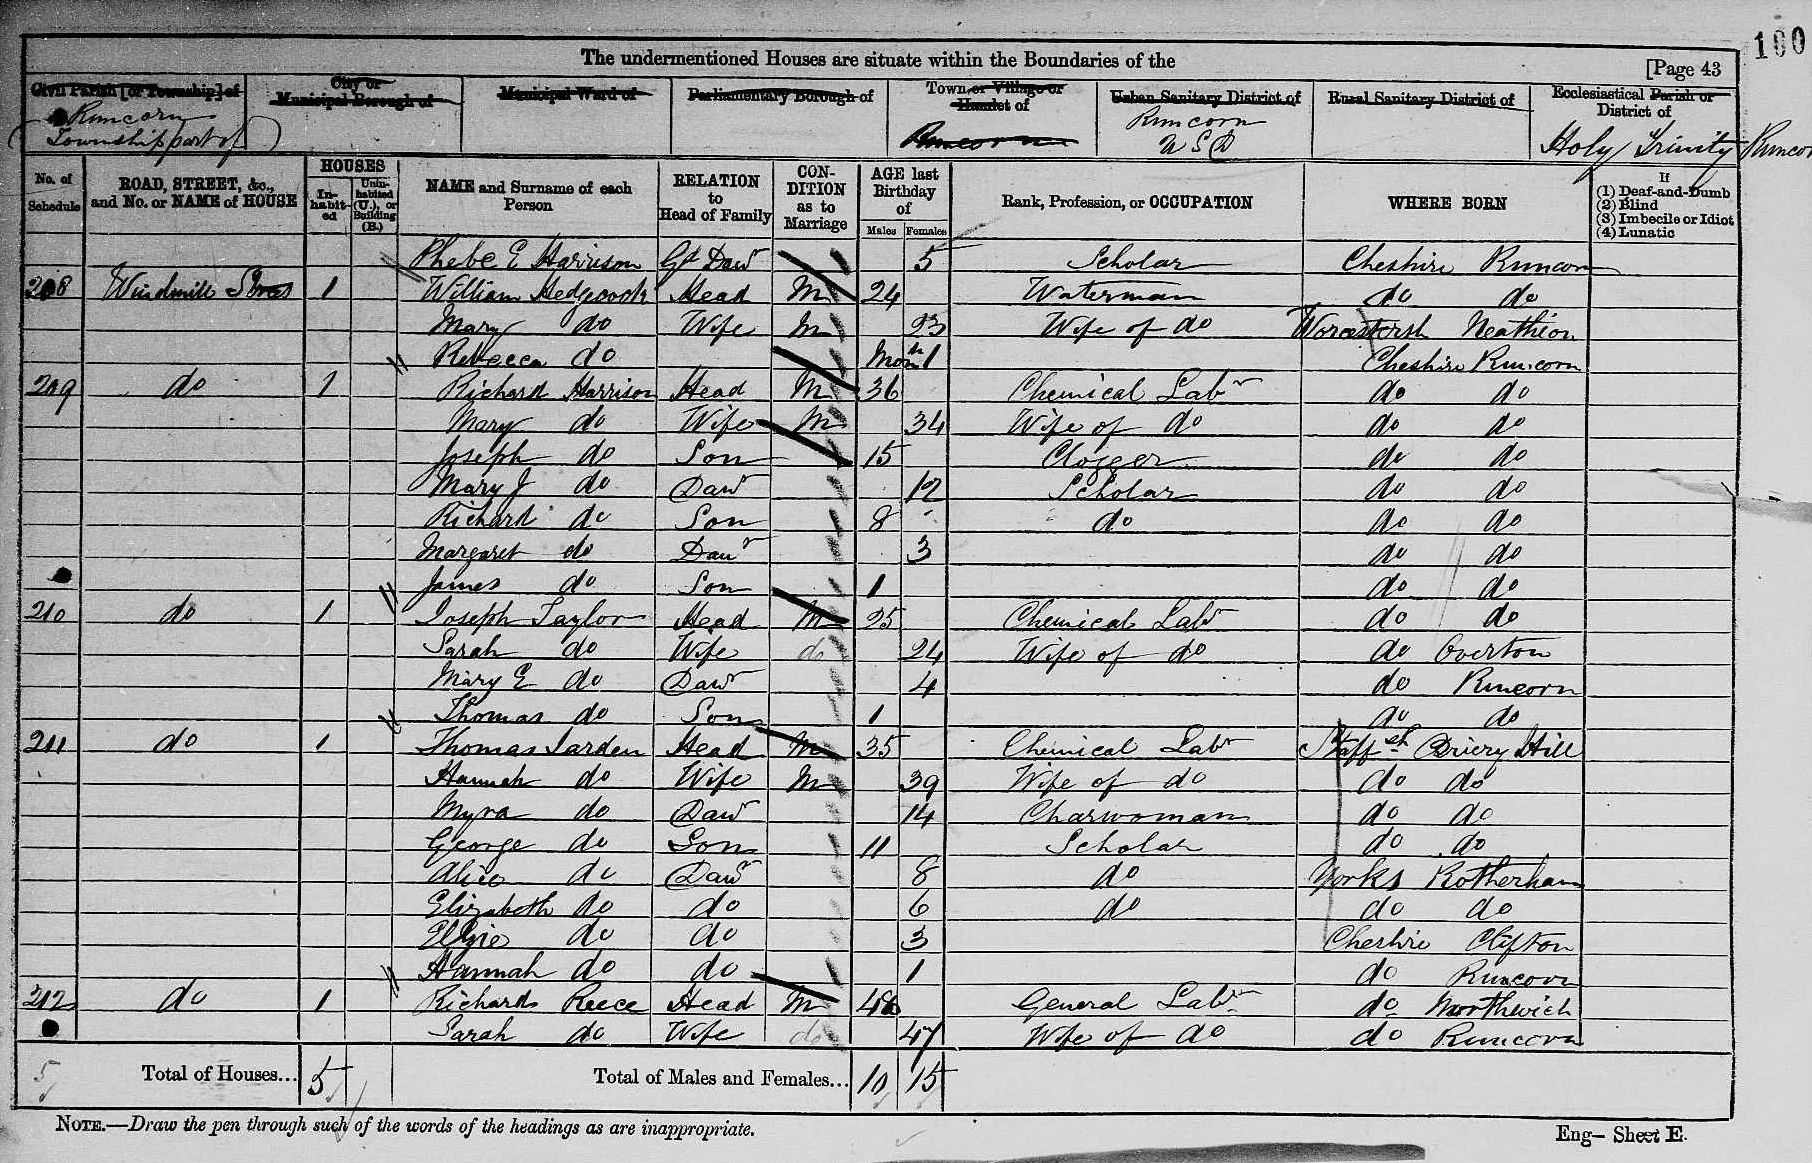 190
The undermentioned Houses are situate within the Boundaries of the
[Page 43
Civil Parish [or Township] of
City or Municipal Borough of
Municipal Ward of
Parliamentary Borough of
Town or Village or Hamlet of
Urban Sanitary District of
Rural Sanitary District of
Ecclesiastical Parish or District of
Runcorn
Township part of
Runcorn
Runcorn
U S D
Holy Trinity Runcorn
No. of Schedule
ROAD, STREET, &c., and No. or NAME of HOUSE
HOUSES
In-habit-ed
Unin-habited (U.), or Building (B.)
NAME and Surname of each Person
RELATION to Head of Family
CON-DITION as to Marriage
AGE last Birthday of
Males
Females
Rank, Profession, or OCCUPATION
WHERE BORN
If
(1) Deaf-and-Dumb
(2) Blind
(3) Imbecile or Idiot
(4) Lunatic
Phebe E Harrison Gd Daur 5 Scholar Cheshire Runcorn
208 Windmill Street 1 William Hedgcock Head M 24 Waterman do do
Mary do Wife M 23 Wife of do Worcestersh
Rebecca do Mon 1 Cheshire Runcorn
209 do 1 Richard Harrison Head M 36 Chemical Labr do do
Mary do Wife M 34 Wife of do do do
Joseph do Son 15 Clogger do do
Mary J do Daur 12 Scholar do do
Richard do Son 8 do do do
Margaret do Daur 3 do do
James do Son 1 do do
210 do 1 Joseph Taylor Head M 25 Chemical Labr do do
Sarah do Wife do 24 Wife of do do Overton
Mary E do Daur 4 do Runcorn
Thomas do Son 1 do do
211 do 1 Thomas Head M 35 Chemical Labr Staffsh Briery Hill
Hannah do Wife M 39 Wife of do do do
Myra do Daur 14 Charwoman do do
George do Son 11 Scholar do do
Alice do Daur 8 do Yorks Rotherham
Elizabeth do do 6 do do do
do do 3 Cheshire Clifton
Hannah do do 1 do Runcorn
212 do 1 Richard Reece Head M 48 General Labr do Northwich
Sarah do Wife do 47 Wife of do do Runcorn
5 Total of Houses... 5 Total of Males and Females... 10 15
NOTE.—Draw the pen through such of the words of the headings as are inappropriate.
Eng— Sheet E.